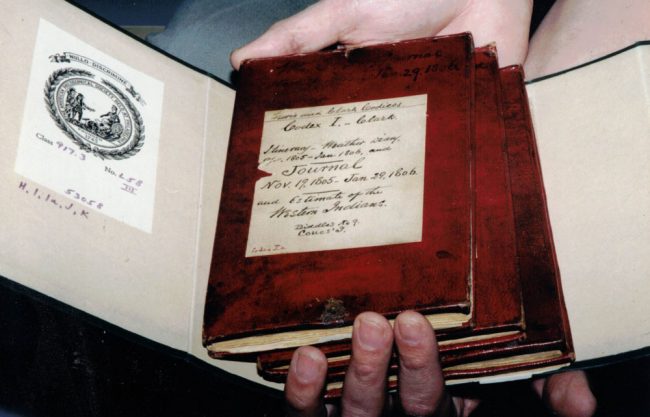 NULLO DISCRIMINE
Class 917.3 No. L58
53058
H, I, Ia, J, K
Journal
Jan. 29. 1806
Lewis and Clark Codices
Codex I. - Clark
Itinerary - Weather Diary,
1805 - Jan. 1806, and
Journal
Nov. 19, 1805 - Jan. 29, 1806.
and Estimate of the
Western Indians.
Biddle's No 9.
Coues' I.
Codex I